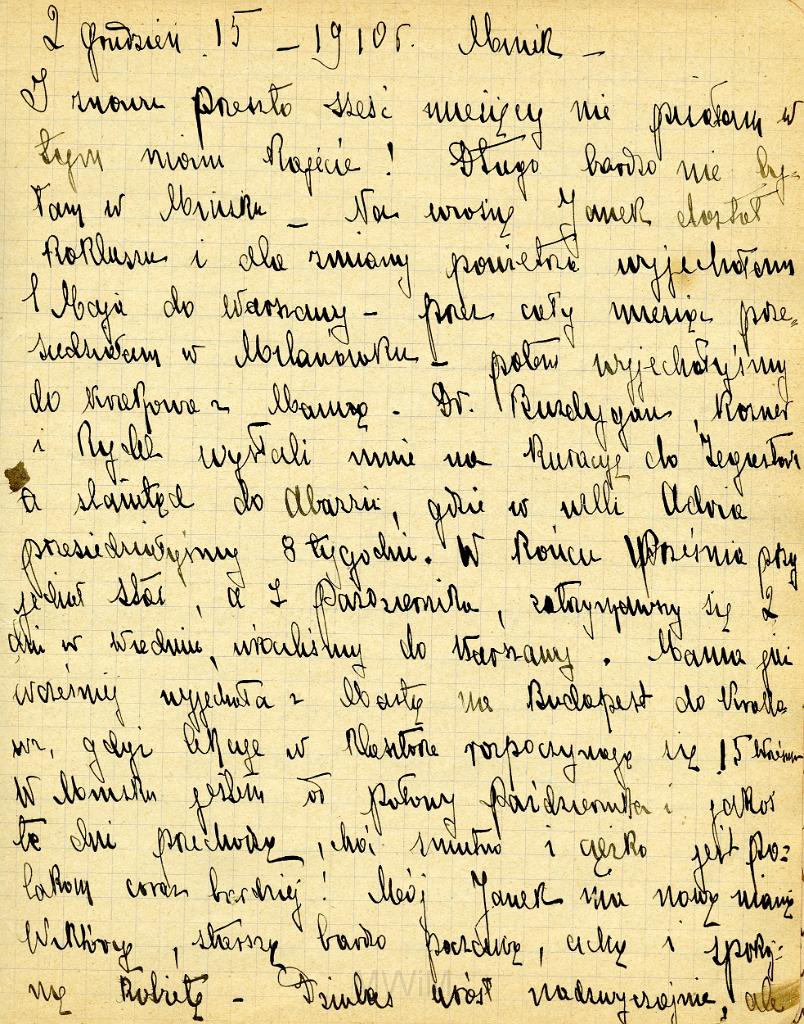 2 Grudzień 15 – 1910 r. Mińsk –
I znowu przeszło sześć miesięcy nie pisałam w
tym moim kajecie! Długo bardzo nie by-
łam w Mińsku – Na wiosnę Janek dostał
kokluszu i dla zmiany powietrza wyjechałam
1 Maja do Warszawy – przez cały miesiąc prze-
siedziałam w Milanówku – potem wyjechałyśmy
do Krakowa z Mamą. Dr. Buzdygan, Rosner
i Rydel wysłali mnie na kurację do Żegiestowa
a stamtąd do Abazzii, gdzie w willi Adria
przesiedziałyśmy 8 tygodni. W końcu Września przy
jechał Staś, a 7 Października, zatrzymawszy się 2
dni w Wiedniu, wróciliśmy do Warszawy. Mama już
wcześniej wyjechała z Martą na Budapest do Krako
wa, gdyż lekcje w klasztorze rozpoczynają się 15 Września
W Mińsku jestem od połowy Października i jakoś
te dni przechodzą, choć smutno i ciężko jest po-
lakom coraz bardziej! Mój Janek ma nową nianię
Wiktorię, starszą bardzo poczciwą, cichą i spokoj-
ną kobietę – Dziubas urósł nadzwyczajnie, ale
MWiM